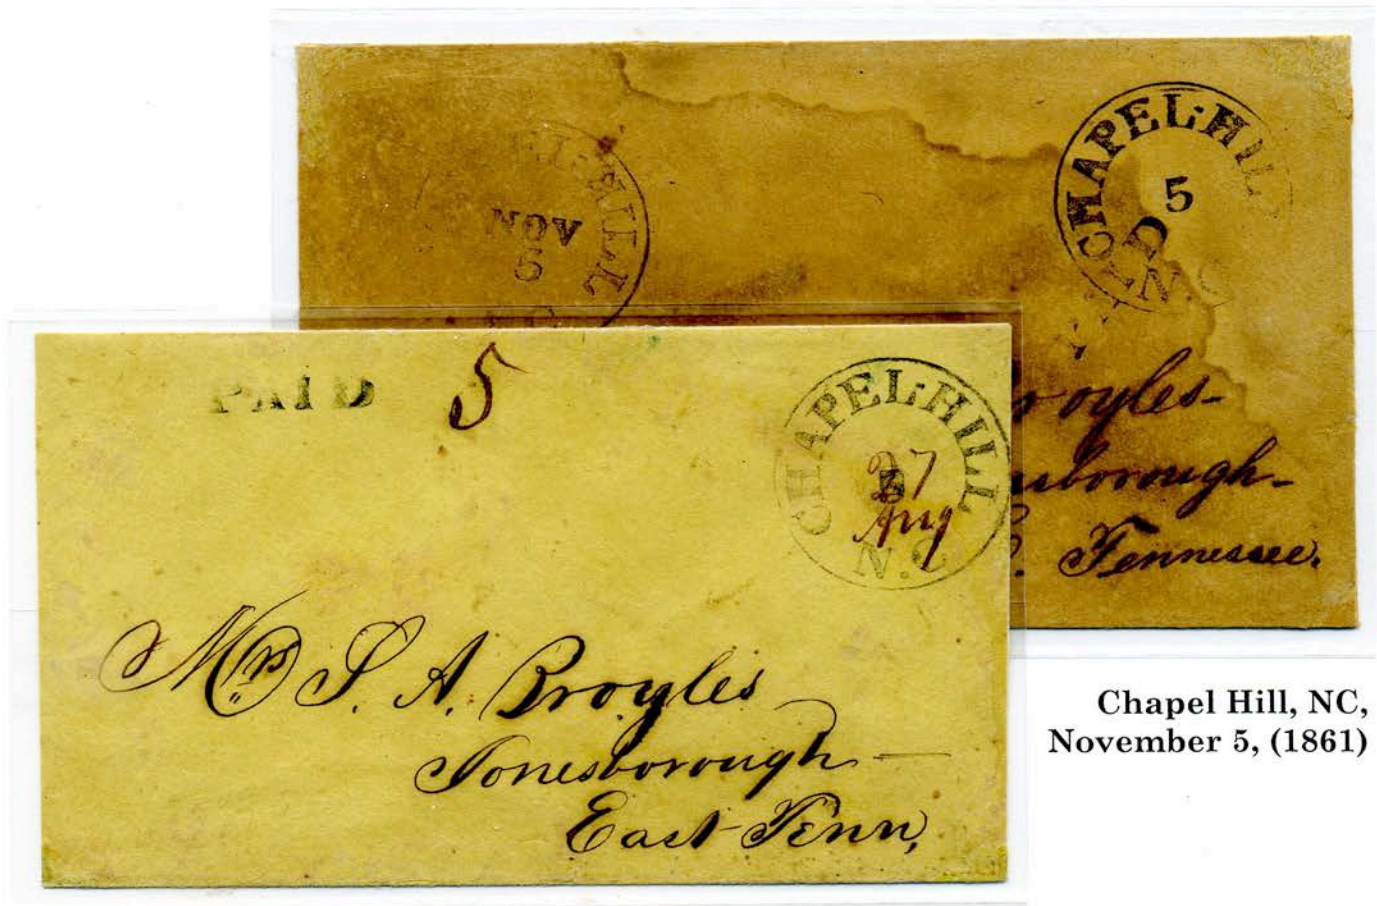 CHAPEL-HILL
5
D
N. C
NOV
5
HILL
oyles-
sborough-
Tennessee.
PAID 5
CHAPEL-HILL
27
Aug
N.C
Mrs S. A. Broyles
Jonesborough —
East Tenn,
Chapel Hill, NC,
November 5, (1861)